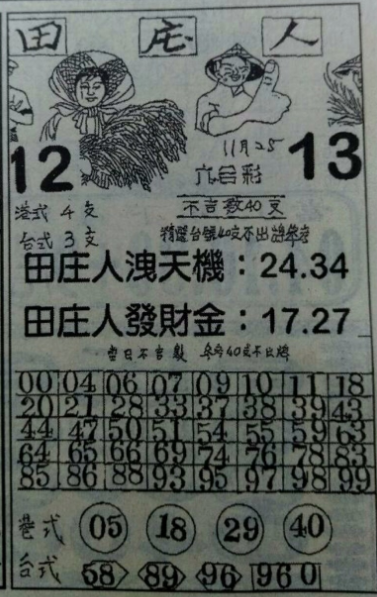 田庄人
11月25
12 六合彩 13
港式 4支 不言数40支
台式 3支 精選台號40支不出牌
田庄人洩天機：24.34
田庄人發財金：17.27
40支不出牌
00 04 06 07 09 10 11 18
20 21 28 33 37 38 39 43
44 47 50 51 54 55 59 63
64 65 66 69 74 76 78 83
85 86 88 93 95 97 98 99
港式 05 18 29 40
台式 58 89 96 960